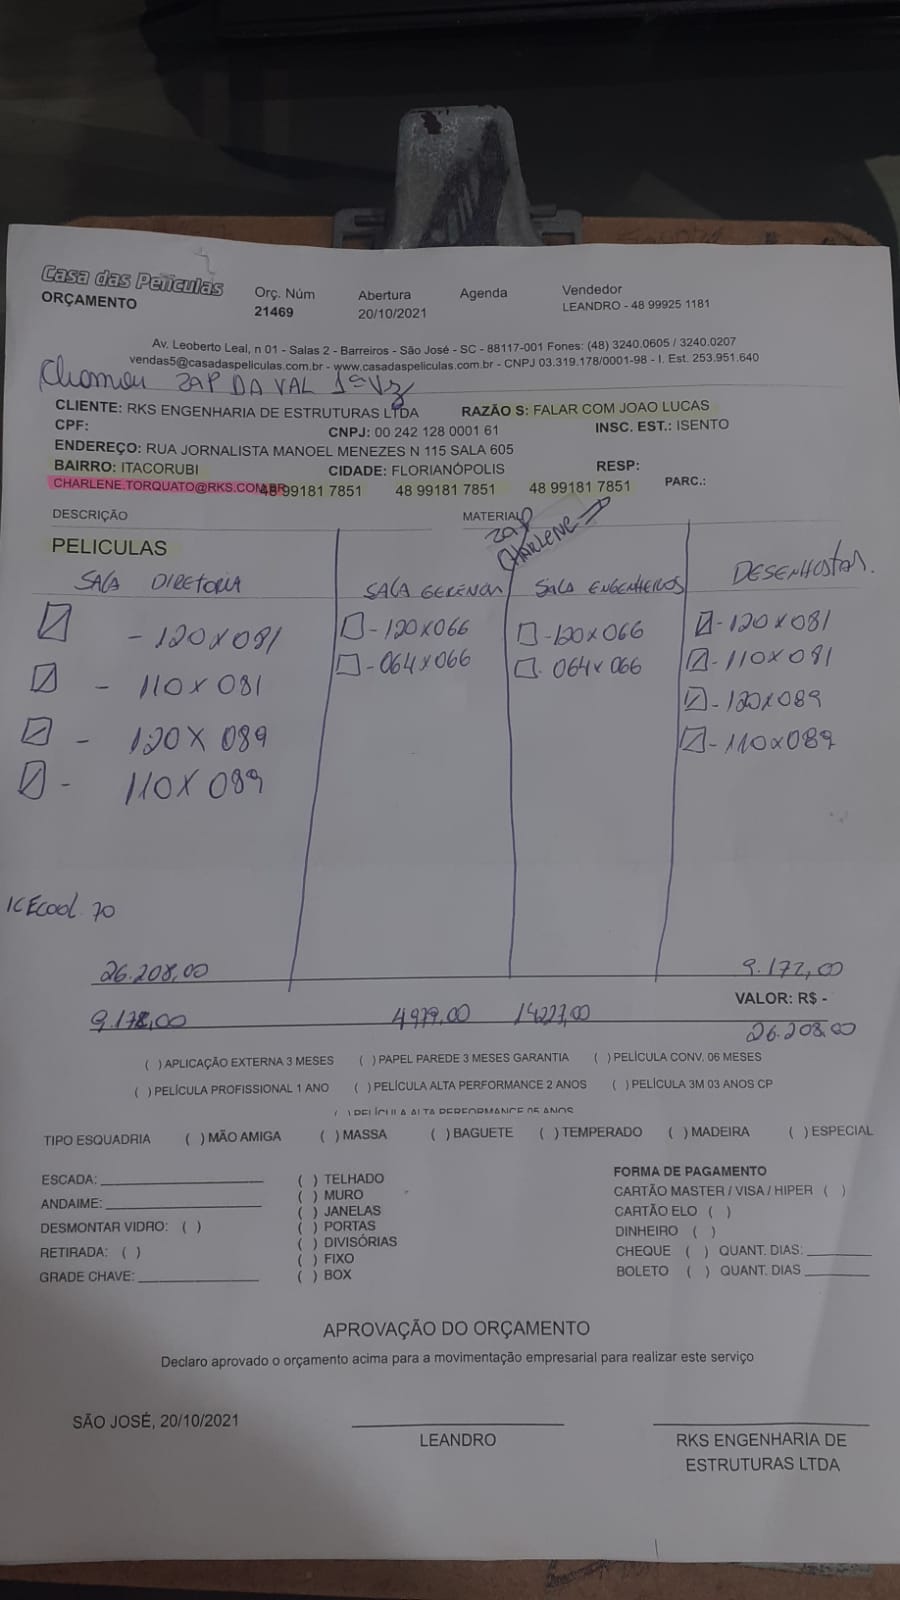 Casa das Películas
ORÇAMENTO
Orç. Núm
21469
Abertura
20/10/2021
Agenda
Vendedor
LEANDRO - 48 99925 1181
Av. Leoberto Leal, n 01 - Salas 2 - Barreiros - São José - SC - 88117-001 Fones: (48) 3240.0605 / 3240.0207
vendas5@casadaspeliculas.com.br - www.casadaspeliculas.com.br - CNPJ 03.319.178/0001-98 - I. Est. 253.951.640
Chamou ZAP DA VAL 1ª Vz
CLIENTE: RKS ENGENHARIA DE ESTRUTURAS LTDA RAZÃO S: FALAR COM JOAO LUCAS
CPF: CNPJ: 00 242 128 0001 61 INSC. EST.: ISENTO
ENDEREÇO: RUA JORNALISTA MANOEL MENEZES N 115 SALA 605
BAIRRO: ITACORUBI CIDADE: FLORIANÓPOLIS RESP:
CHARLENE.TORQUATO@RKS.COM.BR 48 99181 7851 48 99181 7851 48 99181 7851 PARC.:
DESCRIÇÃO MATERIAL
ZAP
CHARLENE
PELICULAS
SALA DIRETORIA
- 120X081
- 110X081
- 120X089
- 110X089
SALA GERENCIA
- 120X066
- 064X066
SALA ENGENHEIROS
- 120X066
- 064X066
- 120X081
- 110X081
- 120X089
- 110X089
ICECOOL 70
26.208,00 9.172,00
VALOR: R$ -
4979,00
26.208,00
( ) APLICAÇÃO EXTERNA 3 MESES ( ) PAPEL PAREDE 3 MESES GARANTIA ( ) PELÍCULA CONV. 06 MESES
( ) PELÍCULA PROFISSIONAL 1 ANO ( ) PELÍCULA ALTA PERFORMANCE 2 ANOS ( ) PELÍCULA 3M 03 ANOS CP
( ) PELÍCULA ALTA PERFORMANCE 05 ANOS
TIPO ESQUADRIA ( ) MÃO AMIGA ( ) MASSA ( ) BAGUETE ( ) TEMPERADO ( ) MADEIRA ( ) ESPECIAL
ESCADA:
ANDAIME:
DESMONTAR VIDRO: ( )
RETIRADA: ( )
GRADE CHAVE:
( ) TELHADO
( ) MURO
( ) JANELAS
( ) PORTAS
( ) DIVISÓRIAS
( ) FIXO
( ) BOX
FORMA DE PAGAMENTO
CARTÃO MASTER / VISA / HIPER ( )
CARTÃO ELO ( )
DINHEIRO ( )
CHEQUE ( ) QUANT. DIAS:
BOLETO ( ) QUANT. DIAS
APROVAÇÃO DO ORÇAMENTO
Declaro aprovado o orçamento acima para a movimentação empresarial para realizar este serviço
SÃO JOSÉ, 20/10/2021
LEANDRO
RKS ENGENHARIA DE
ESTRUTURAS LTDA